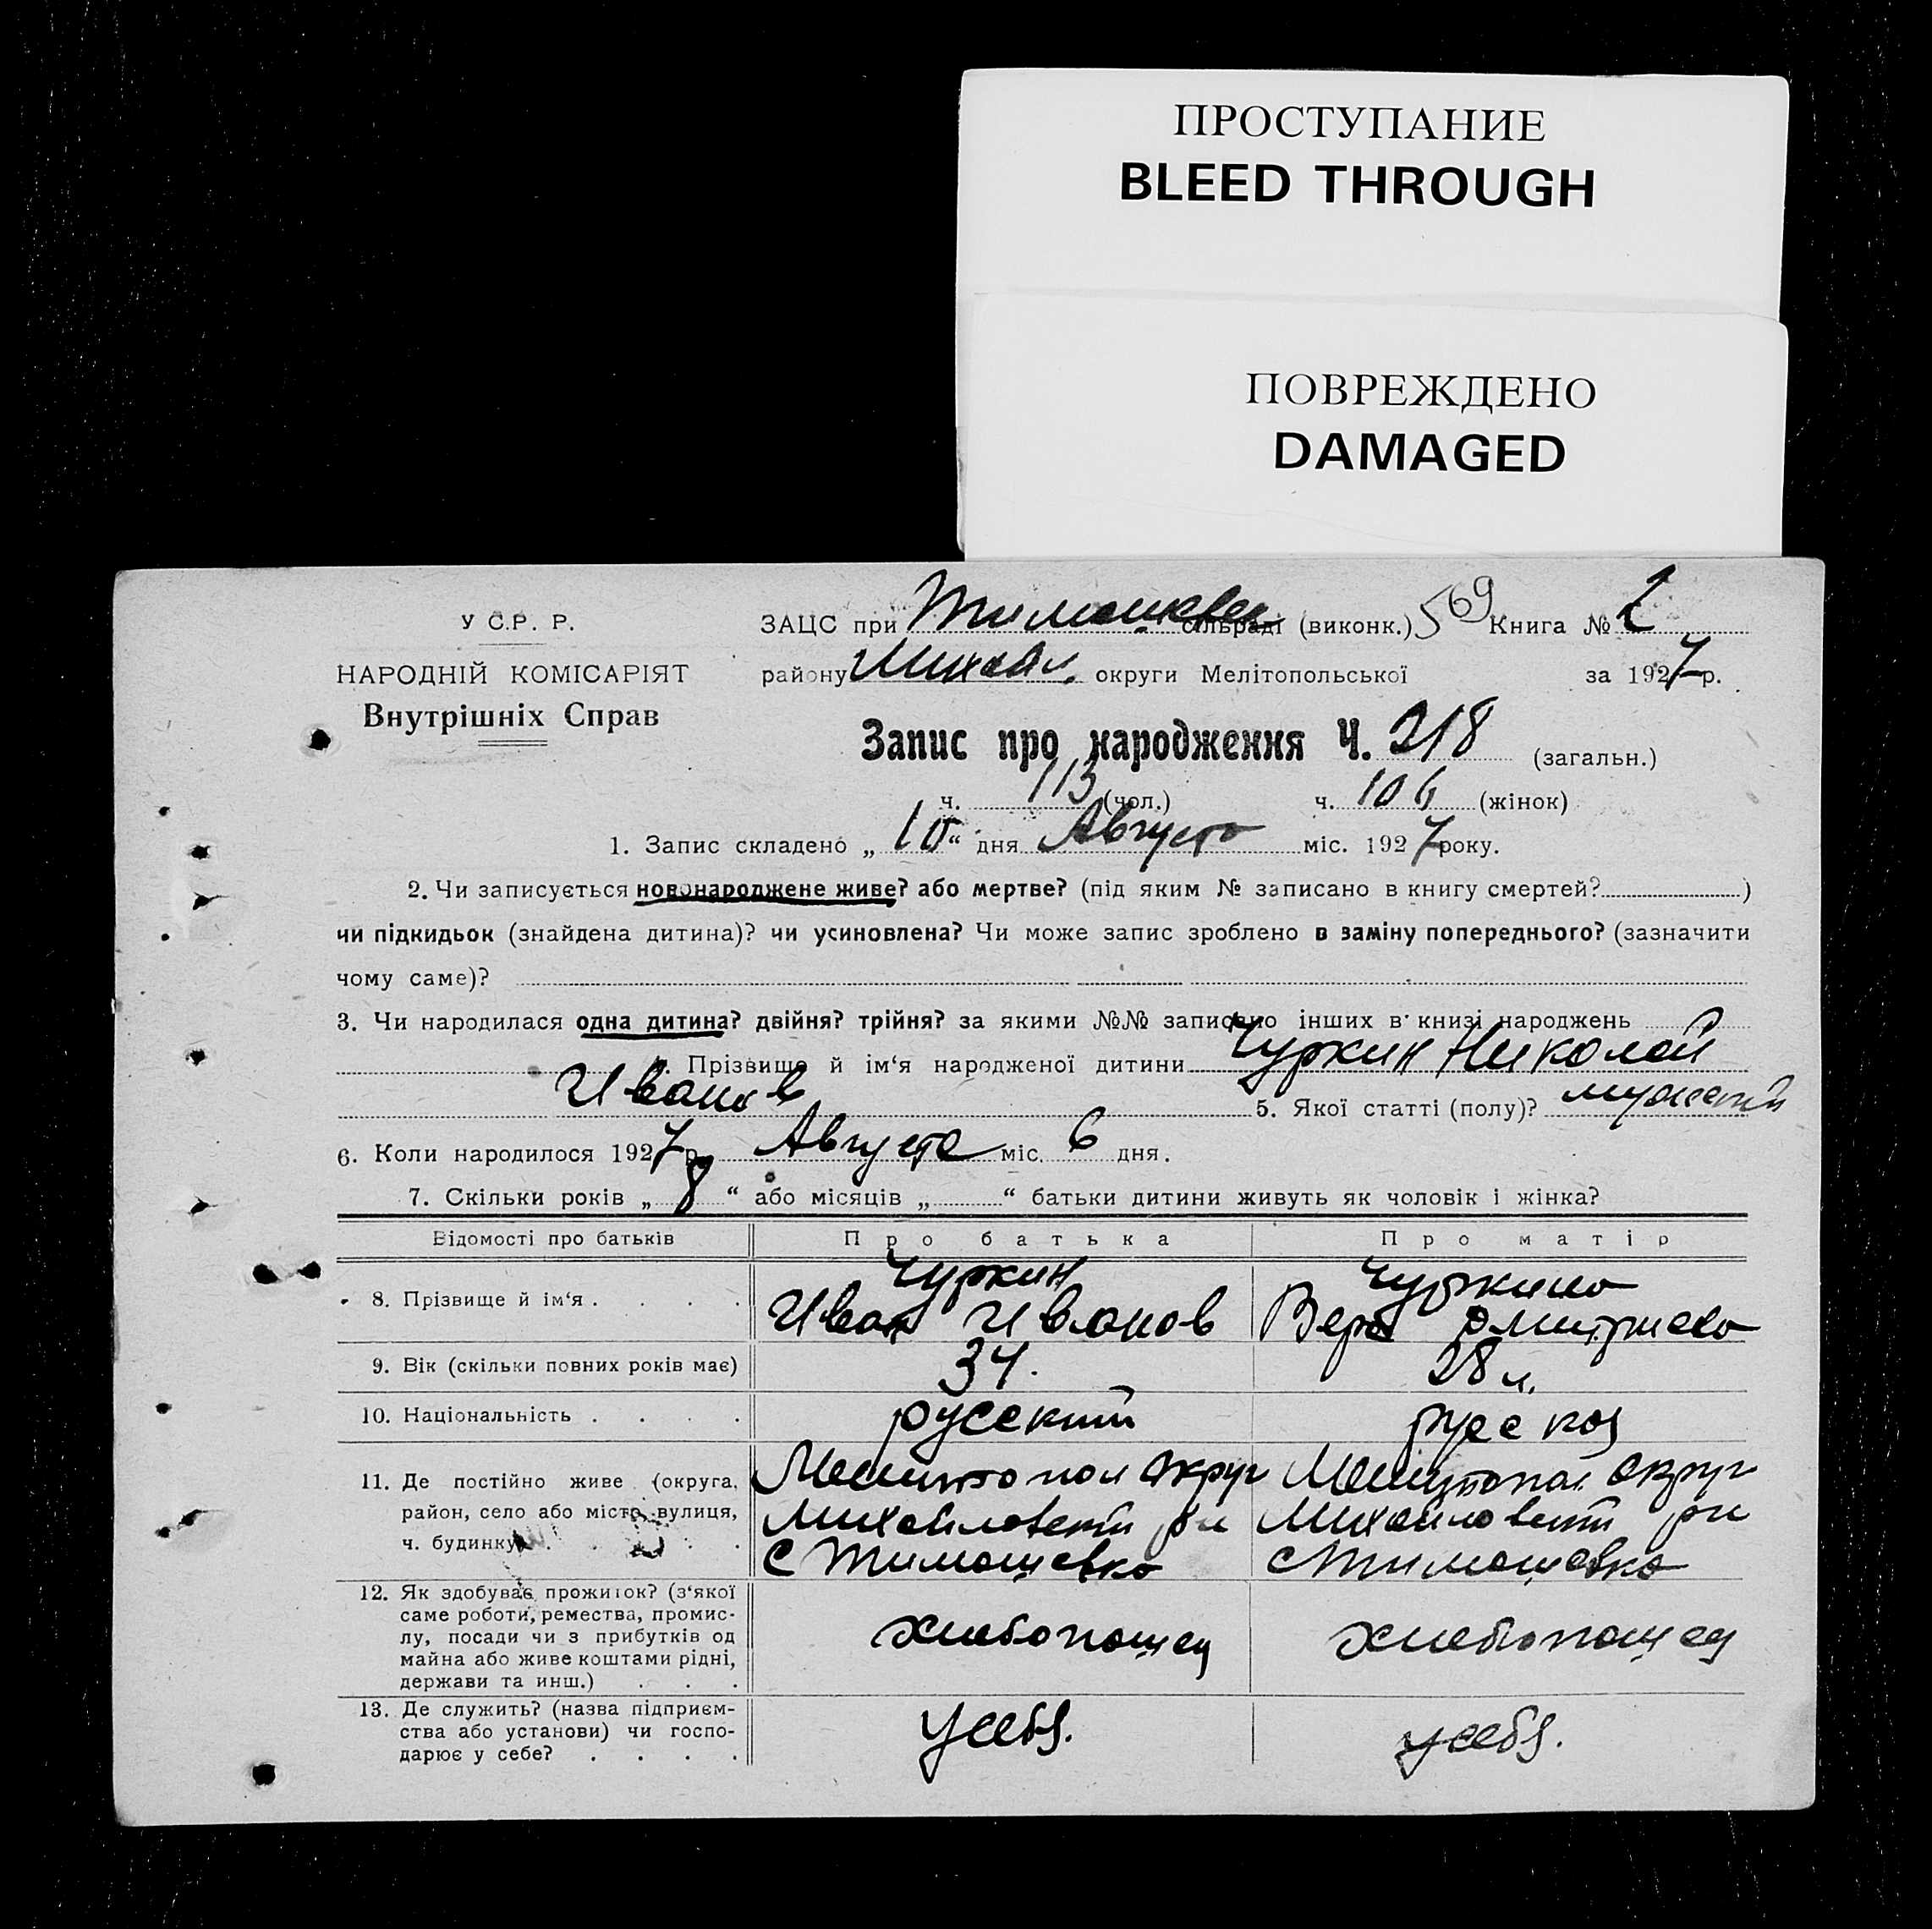 ПРОСТУПАНИЕ
BLEED THROUGH
ПОВРЕЖДЕНО
DAMAGED
У С.Р. Р.
НАРОДНІЙ КОМІСАРІЯТ
Внутрішніх Справ
ЗАЦС при Тимошевск сільраді (виконк.) 569 Книга № 2
району Михайл. округи Мелітопольської за 1927 р.
Запис про народження Ч. 218 (загальн.)
ч. 113 (чол.) ч. 106 (жінок)
1. Запис складено „10“ дня Августа міс. 1927 року.
2. Чи записується новонароджене живе? або мертве? (під яким № записано в книгу смертей? )
чи підкидьок (знайдена дитина)? чи усиновлена? Чи може запис зроблено в заміну попереднього? (зазначити
чому саме)?
3. Чи народилася одна дитина? двійня? трійня? за якими №№ записано інших в книзі народжень
Прізвище й ім‘я народженої дитини Чуркин Николай
Иванов 5. Якої статті (полу)? мужской
6. Коли народилося 1927 р. Августа міс. 6 дня.
7. Скільки років „8“ або місяців „ “ батьки дитини живуть як чоловік і жінка?
Відомості про батьків Про батька Про матір
8. Прізвище й ім‘я . . . . Чуркин Иван Иванов Чуркина Вера Дмитриева
9. Вік (скільки повних років має) 34. 28 л.
10. Національність . . . . русский русская
11. Де постійно живе (округа, Мелитопол округ Мелитопол округ
район, село або місто, вулиця, Михайловский рн Михайловский рн
ч. будинку) . . . . С Тимошевка С Тимошевка
12. Як здобуває прожиток? (з‘якої
саме роботи, ремества, промис-
лу, посади чи з прибутків од хлебопашец хлебопашец
майна або живе коштами рідні,
держави та инш.) . . .
13. Де служить? (назва підприєм-
ства або установи) чи госпо- у себя. у себя.
дарює у себе? . . . .